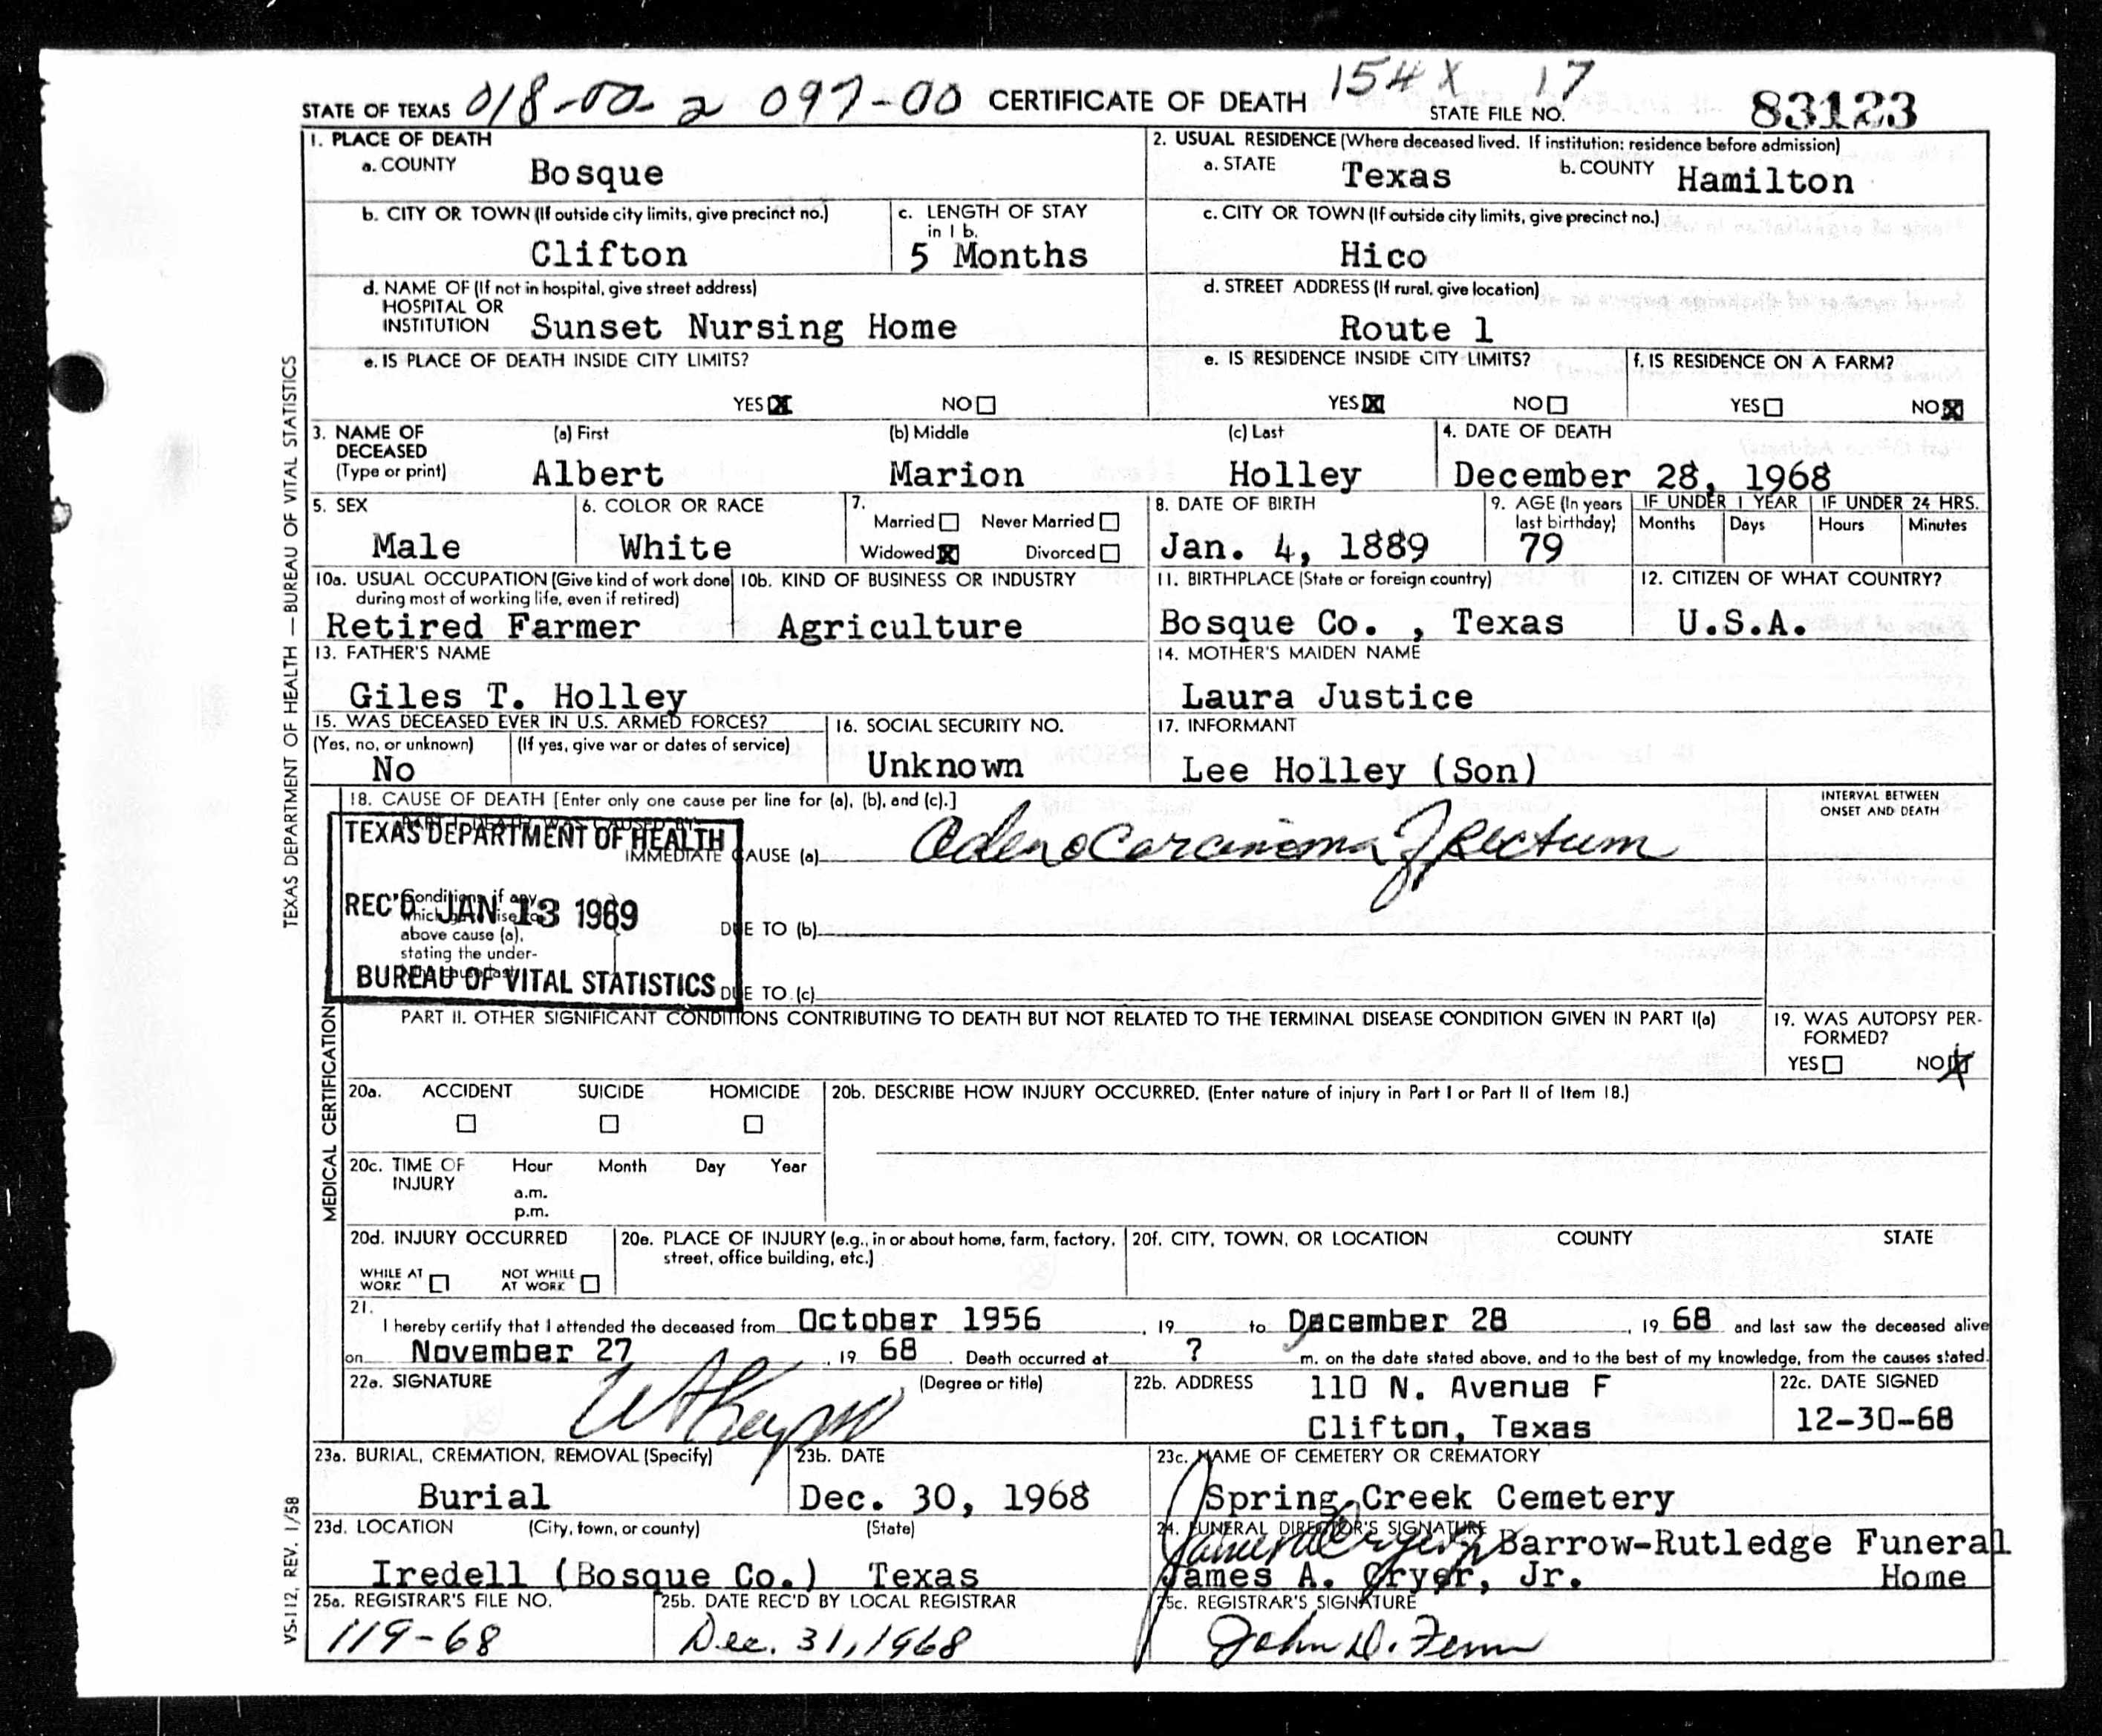 154 X 17
STATE OF TEXAS 018-00 2 097-00 CERTIFICATE OF DEATH STATE FILE NO. 83123
1. PLACE OF DEATH
a. COUNTY Bosque
2. USUAL RESIDENCE (Where deceased lived. If institution: residence before admission)
a. STATE Texas b. COUNTY Hamilton
b. CITY OR TOWN (If outside city limits, give precinct no.)
Clifton
c. LENGTH OF STAY
in 1 b.
5 Months
c. CITY OR TOWN (If outside city limits, give precinct no.)
Hico
d. NAME OF (If not in hospital, give street address)
HOSPITAL OR
INSTITUTION Sunset Nursing Home
d. STREET ADDRESS (If rural, give location)
Route 1
e. IS PLACE OF DEATH INSIDE CITY LIMITS?
YES NO
e. IS RESIDENCE INSIDE CITY LIMITS?
YES NO
f. IS RESIDENCE ON A FARM?
YES NO
3. NAME OF
DECEASED
(Type or print)
(a) First (b) Middle (c) Last
Albert Marion Holley
4. DATE OF DEATH
December 28, 1968
5. SEX
Male
6. COLOR OR RACE
White
7.
Married Never Married
Widowed Divorced
8. DATE OF BIRTH
Jan. 4, 1889
9. AGE (In years
last birthday)
79
IF UNDER 1 YEAR IF UNDER 24 HRS.
Months Days Hours Minutes
10a. USUAL OCCUPATION (Give kind of work done
during most of working life, even if retired)
Retired Farmer
10b. KIND OF BUSINESS OR INDUSTRY
Agriculture
11. BIRTHPLACE (State or foreign country)
Bosque Co. , Texas
12. CITIZEN OF WHAT COUNTRY?
U.S.A.
13. FATHER'S NAME
Giles T. Holley
14. MOTHER'S MAIDEN NAME
Laura Justice
15. WAS DECEASED EVER IN U.S. ARMED FORCES?
(Yes, no, or unknown) (If yes, give war or dates of service)
No
16. SOCIAL SECURITY NO.
Unknown
17. INFORMANT
Lee Holley (Son)
18. CAUSE OF DEATH [Enter only one cause per line for (a), (b), and (c).]
INTERVAL BETWEEN
ONSET AND DEATH
TEXAS DEPARTMENT OF HEALTH
REC'D JAN 13 1969
BUREAU OF VITAL STATISTICS
IMMEDIATE CAUSE (a) Adenocarcinoma of Rectum
Conditions, if any,
which gave rise to
above cause (a),
stating the under-
DUE TO (b)
DUE TO (c)
PART II. OTHER SIGNIFICANT CONDITIONS CONTRIBUTING TO DEATH BUT NOT RELATED TO THE TERMINAL DISEASE CONDITION GIVEN IN PART I(a)
19. WAS AUTOPSY PER-
FORMED?
YES NO
20a. ACCIDENT SUICIDE HOMICIDE
20b. DESCRIBE HOW INJURY OCCURRED. (Enter nature of injury in Part I or Part II of Item 18.)
20c. TIME OF
INJURY
Hour Month Day Year
a.m.
p.m.
20d. INJURY OCCURRED
WHILE AT
WORK
NOT WHILE
AT WORK
20e. PLACE OF INJURY (e.g., in or about home, farm, factory,
street, office building, etc.)
20f. CITY, TOWN, OR LOCATION COUNTY STATE
21.
I hereby certify that I attended the deceased from October 1956 , 19 to December 28 , 19 68 and last saw the deceased alive
on November 27 , 19 68 . Death occurred at ? m. on the date stated above, and to the best of my knowledge, from the causes stated.
22a. SIGNATURE (Degree or title)
22b. ADDRESS 110 N. Avenue F
Clifton, Texas
22c. DATE SIGNED
12-30-68
23a. BURIAL, CREMATION, REMOVAL (Specify)
Burial
23b. DATE
Dec. 30, 1968
23c. NAME OF CEMETERY OR CREMATORY
Spring Creek Cemetery
23d. LOCATION (City, town, or county) (State)
Iredell (Bosque Co.) Texas
24. FUNERAL DIRECTOR'S SIGNATURE
Barrow-Rutledge Funeral
James A. Cryer, Jr. Home
25a. REGISTRAR'S FILE NO.
119-68
25b. DATE REC'D BY LOCAL REGISTRAR
Dec. 31, 1968
25c. REGISTRAR'S SIGNATURE
John D. Fenn
TEXAS DEPARTMENT OF HEALTH — BUREAU OF VITAL STATISTICS
MEDICAL CERTIFICATION
VS-112, REV. 1/58